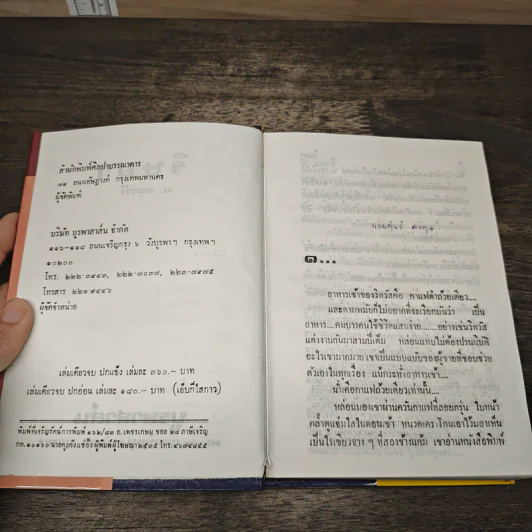 สำนักพิมพ์ศิลปาบรรณาคาร
๗๙ ถนนกัษฎางค์ กรุงเทพมหานคร
ผู้จัดพิมพ์
บริษัท บูรพาสาส์น จำกัด
๑๑๖-๑๑๘ ถนนเจริญกรุง ๖ วังบูรพาฯ กรุงเทพฯ
๑๐๒๐๐
โทร. ๒๒๒-๓๙๔๓, ๒๒๒-๗๐๓๗, ๒๒๓-๗๔๗๕
โทรสาร ๒๒๑-๙๔๔๖
ผู้จัดจำหน่าย
เล่มเดียวจบ ปกแข็ง เล่มละ ๓๖๐.- บาท
เล่มเดียวจบ ปกอ่อน เล่มละ ๑๘๐.- บาท (เย็บกี่ไสกาว)
๑...
อาหารเช้าของวิทวัสคือ กาแฟดำถ้วยเดียว....
และตามพมยก็ไม่อยากที่จะเรียกมันว่า เป็น
อาหาร...คนบางคนใช้ชีวิตแสนง่าย......อย่างเช่นวิทวัส
แต่งงานกันมาสามปีเต็ม หล่อนแทบไม่ต้องปรนนิบัติ
อะไรเขามากมาย เขาเป็นแบบฉบับของผู้ชายที่ชอบช่วย
ตัวเองในทุกเรื่อง แม้กระทั่งอาหารเช้า....
นี่ก็คือกาแฟถ้วยเดียวเท่านั้น....
หล่อนมองเขาผ่านควันกาแฟที่ลอยกรุ่น ใบหน้า
คล้ำดูแช่มใสในตอนเช้า หนวดเคระโกนเอาไว้มองเห็น
เป็นไรเขียวจาง ๆ ที่สองข้างแก้ม เขาอ่านหนังสือพิมพ์